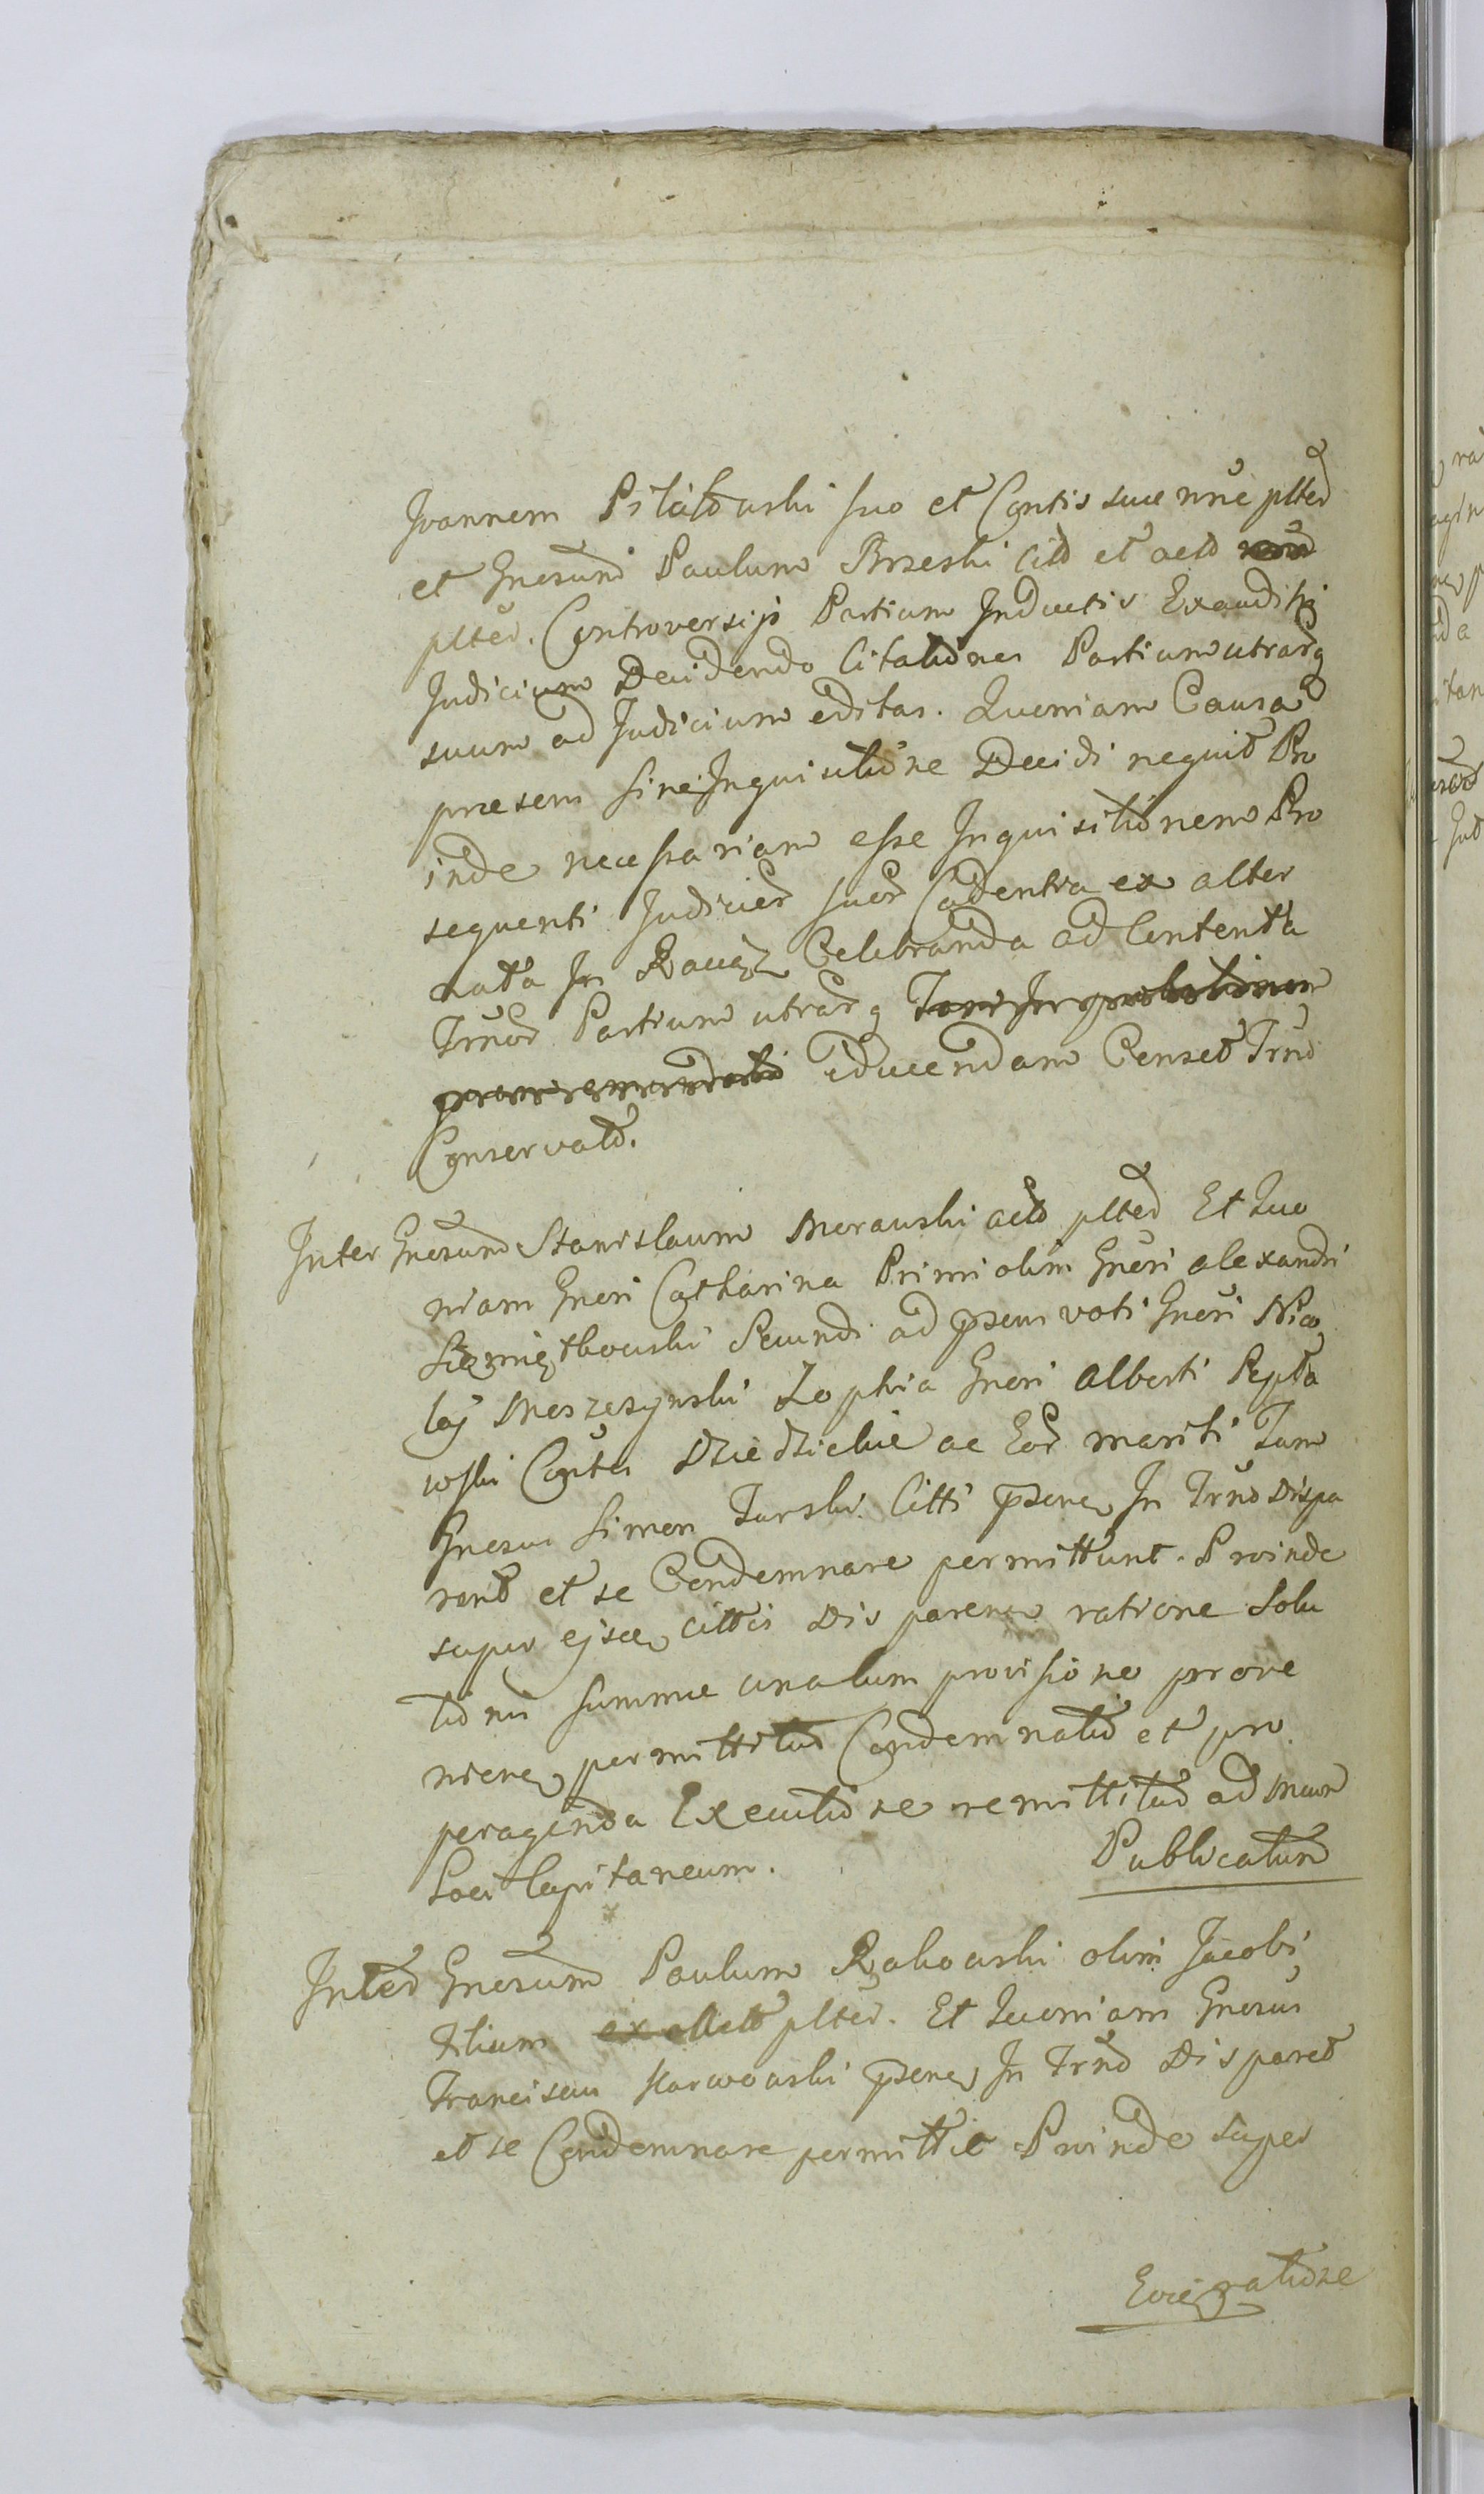 Joannem Pilitowski suo et Contis suae nñe plted
et Gnesund Paulum Brzeski Citt et actt
plted. Controversijs Partium Inductis Exauditisq
Judicium Decidendo Citationes Partium utrarq
suum ad Judicium editas. Quoniam Causa
praesens sine Inquisitione Decidi nequit Pro
inde necessariam esse Inquisitionem Pro
sequenti Judicior suor Cadentia ex alter
nata In Celebranda ad Contenta
Trñor Partium utrarq
educendam Censet Trñd
Conservatd.
Inter Gnosum Stanislaum Morawski actt plted Et Quo
niam Gnesi Catharina Primi olim Gnesi Alexandri
Secundi ad psens voti Gnesi Nico
laj Meszczynski Zophia Gnesi Alberti
wski Contes Dziedzickie ac Eor mariti Tum
Gnesus Simon Turski Citti psene In Trño Dispa
rent et se Condemnare permittunt. Proinde
super ejsce cittis Disparene ratione Solu
tionis Summae una cum provisione prove
niene permittitur Condemnatio et pro
peraginda Executione remittitur ad Mum
Loci Capitaneum.
Publicatum
Inter Gnesum Paulum Rakowski olim Jacobi
filium plted. Et Quoniam Gnosus
Franciscus Karwowski psene In Trño Disparet
et se Condemnare permittit Proinde super
Evigatione